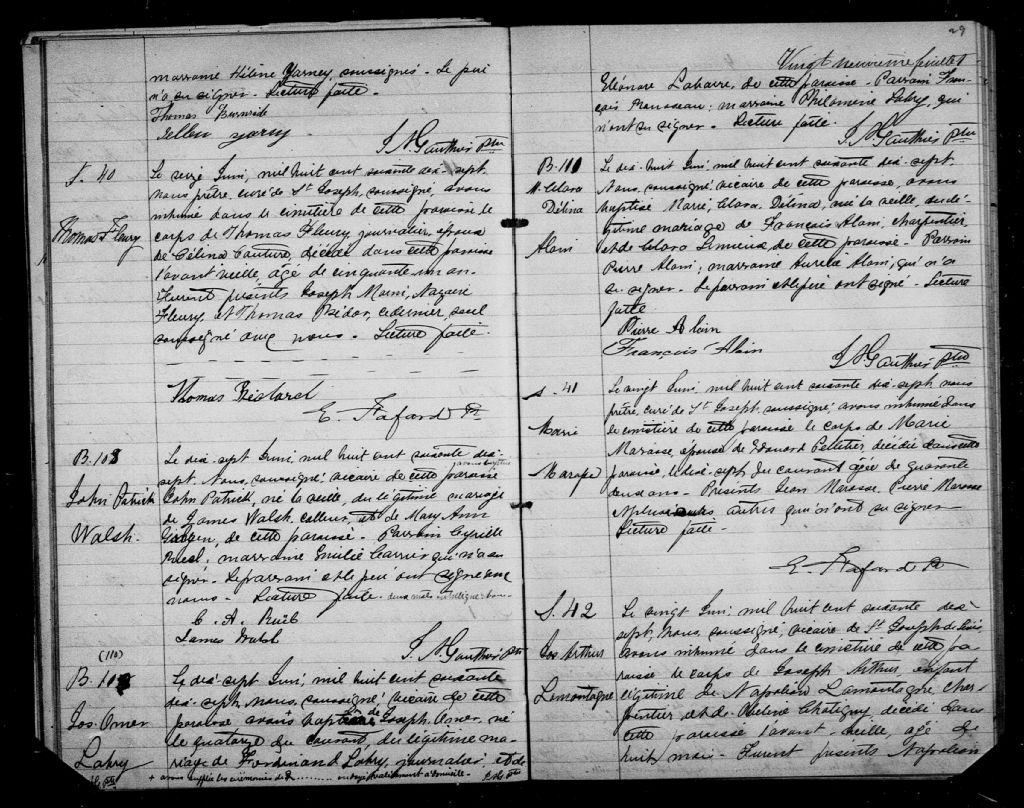 marraine Hélène Yarney, soussignés. Le père
n'a su signer. Lecture faite.
Thomas Burnside
Ellen
J. N. Gauthier Ptre
S. 40
Thomas Fleury
Le seize Juin, mil huit cent soixante dix-sept
nous prêtre, curé de St Joseph, soussigné, avons
inhumé dans le cimetière de cette paroisse le
corps de Thomas Fleury journalier, époux
de Célina Couture, décédé dans cette paroisse
l'avant veille, âgé de cinquante-un an.
Furent présents Joseph Morin, Nazaire
Fleury et Thomas Bédar, ce dernier, seul
soussigné avec nous. Lecture faite.
Thomas Bédard
E. Fafard Ptr
B. 108
John Patrick
Walsh.
Le dix-sept Juin, mil huit cent soixante dix-
sept, Nous, soussigné, vicaire de cette paroisse
avons baptisé
John Patrick, né la veille, du légitime mariage
de James Walsh, colleur, et de Mary Ann
de cette paroisse. Parrain Cyrille
marraine Emilie Carrier qui n'a su
signer. Le parrain et le père ont signé avec
nous. Lecture faite. deux mots bons.
C. A. Ruel
James Walsh
J. N. Gauthier Ptre
(110)
B. 109
Jos. Omer
Labry
Le dix-sept Juin, mil huit cent soixante
dix-sept, Nous, soussigné, vicaire de cette
paroisse avons baptisé Joseph Omer, né
le quatorze du courant, du légitime ma-
riage de Ferdinand Labry, journalier, et de
+ avons suppléé les cérémonies du
29
Vingt neuvième feuillet
Eléonore Labarre, de cette paroisse. Parrain Fran-
çois; marraine Philomène Labry, qui
n'ont su signer. Lecture faite.
J. N. Gauthier Ptre
B. 111
M. Clara
Délina
Alain
Le dix-huit Juin, mil huit cent soixante dix-sept
Nous, soussigné, vicaire de cette paroisse, avons
baptisé Marie, Clara, Délina, née la veille, du lé-
gitime mariage de François Alain, charpentier,
et de Clara Lemieux de cette paroisse. Parrain
Pierre Alain; marraine Aurélie Alain, qui n'a
su signer. Le parrain et le père ont signé. Lecture
faite
Pierre Alain
François Alain
J. N. Gauthier Ptre
S. 41
Marie
Marasse
Le vingt Juin, mil huit cent soixante dix-sept nous
prêtre, curé de St Joseph, soussigné, avons inhumé dans
le cimetière de cette paroisse le corps de Marie
Marasse, épouse de Edouard Pelletier, décédée dans cette
paroisse, le dix-sept du courant âgée de quarante
deux ans. Présents Jean Marasse, Pierre Marasse
et plusieurs autres qui n'ont su signer
Lecture faite.
E. Fafard Ptr
S. 42
Jos Arthur
Lamontagne
Le vingt Juin, mil huit cent soixante dix-
sept, Nous, soussigné, vicaire de St Joseph de Lévis
avons inhumé dans le cimetière de cette pa-
roisse le corps de Joseph Arthur, enfant
légitime de Napoléon Lamontagne, char-
pentier, et de Chatigny, décédé dans
cette paroisse l'avant-veille, âgé de
huit mois. Furent présents Napoléon